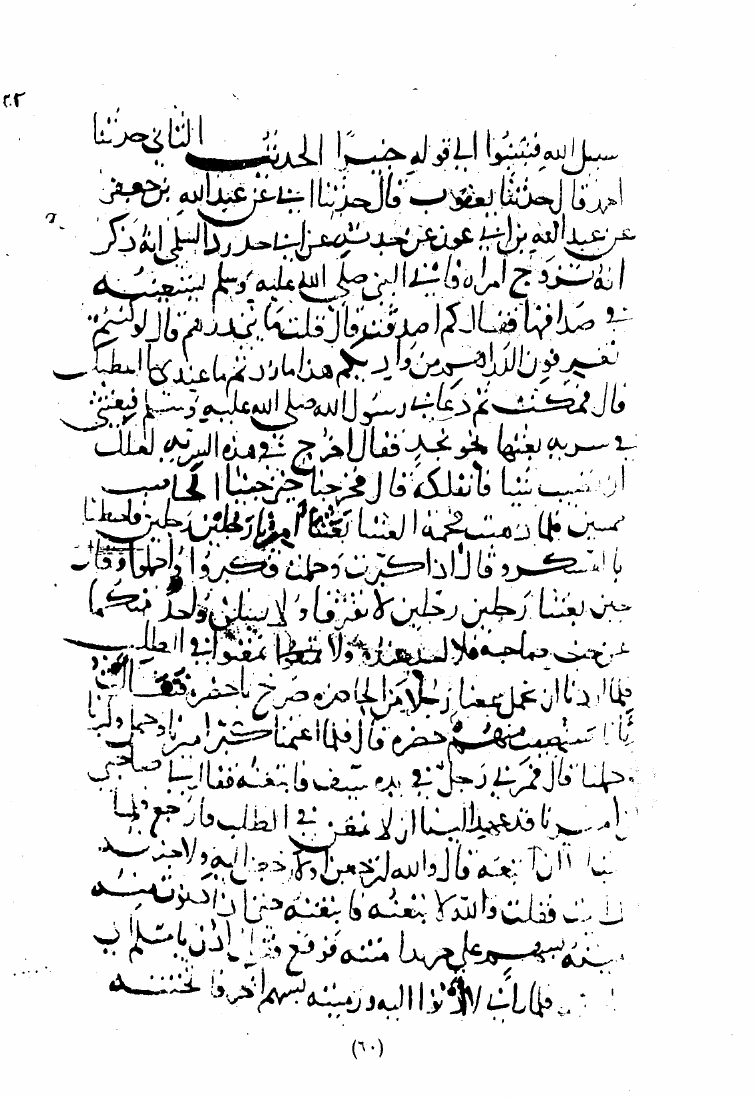 ٢٠٢
سبيل الله فتبينوا الى قوله خبيرا الحديث الثاني حدثنا
احمد قال حدثنا يعقوب قال حدثنا ابي عن عبد الله بن جعفر
عن عبد الواحد بن ابي عون عن جدته عن ابن ابي حدرد السلمي انه ذكر
انه تزوج امراه فاتي النبي صلى الله عليه وسلم يستعينه
في صداقها فقال كم اصدقت قال قلت مايتي درهم قال لو كنتم
تغرفون الدراهم من واديكم هذا ما زدتم ما عندي ما اعطيك
قال فمكثت ثم دعاني رسول الله صلى الله عليه وسلم فبعثني
في سريه بعثها نحو نجد فقال اخرج في هذه السريه لعلك
ان تصيب شيا فانفلكه قال فخرجنا حتى جينا الحاضر
ممسين فلما ذهبت فحمة العشا بعثنا اميرنا رجلين رجلين فاحطنا
بالعسكر وقال اذا كبرت وحملت فكبروا واحملوا وقال
حين بعثنا رجلين رجلين لا تفترقا ولا يسلن واحد منكما
عن صاحبه فلا ولا تمعنوا في الطلب
فلما اردنا ان نحمل سمعنا رجلا من الحاضر صرخ يا خضره فتفالت
بانا سنصيب منهم خضره قال فلما اعتمنا كبر اميرنا وحمل وكبرنا
وحملنا قال فمر بي رجل في يده سيف فاتبعته فقال لي صاحبي
ان اميرنا قد عهد الينا ان لا نمعن في الطلب فارجع فلما
الا ان اتبعه قال والله لترجعن او لارجعن اليه ولاخبرنه
فقلت والله لا تبعنه فاتبعته حتى اذا دنوت منه
رميته بسهم على جريدا متنه فوقع فقال ادن يا مسلم الى
فلما راني لا ادنوا اليه ورميته بسهم اخر فاثخنته
(٦٠)